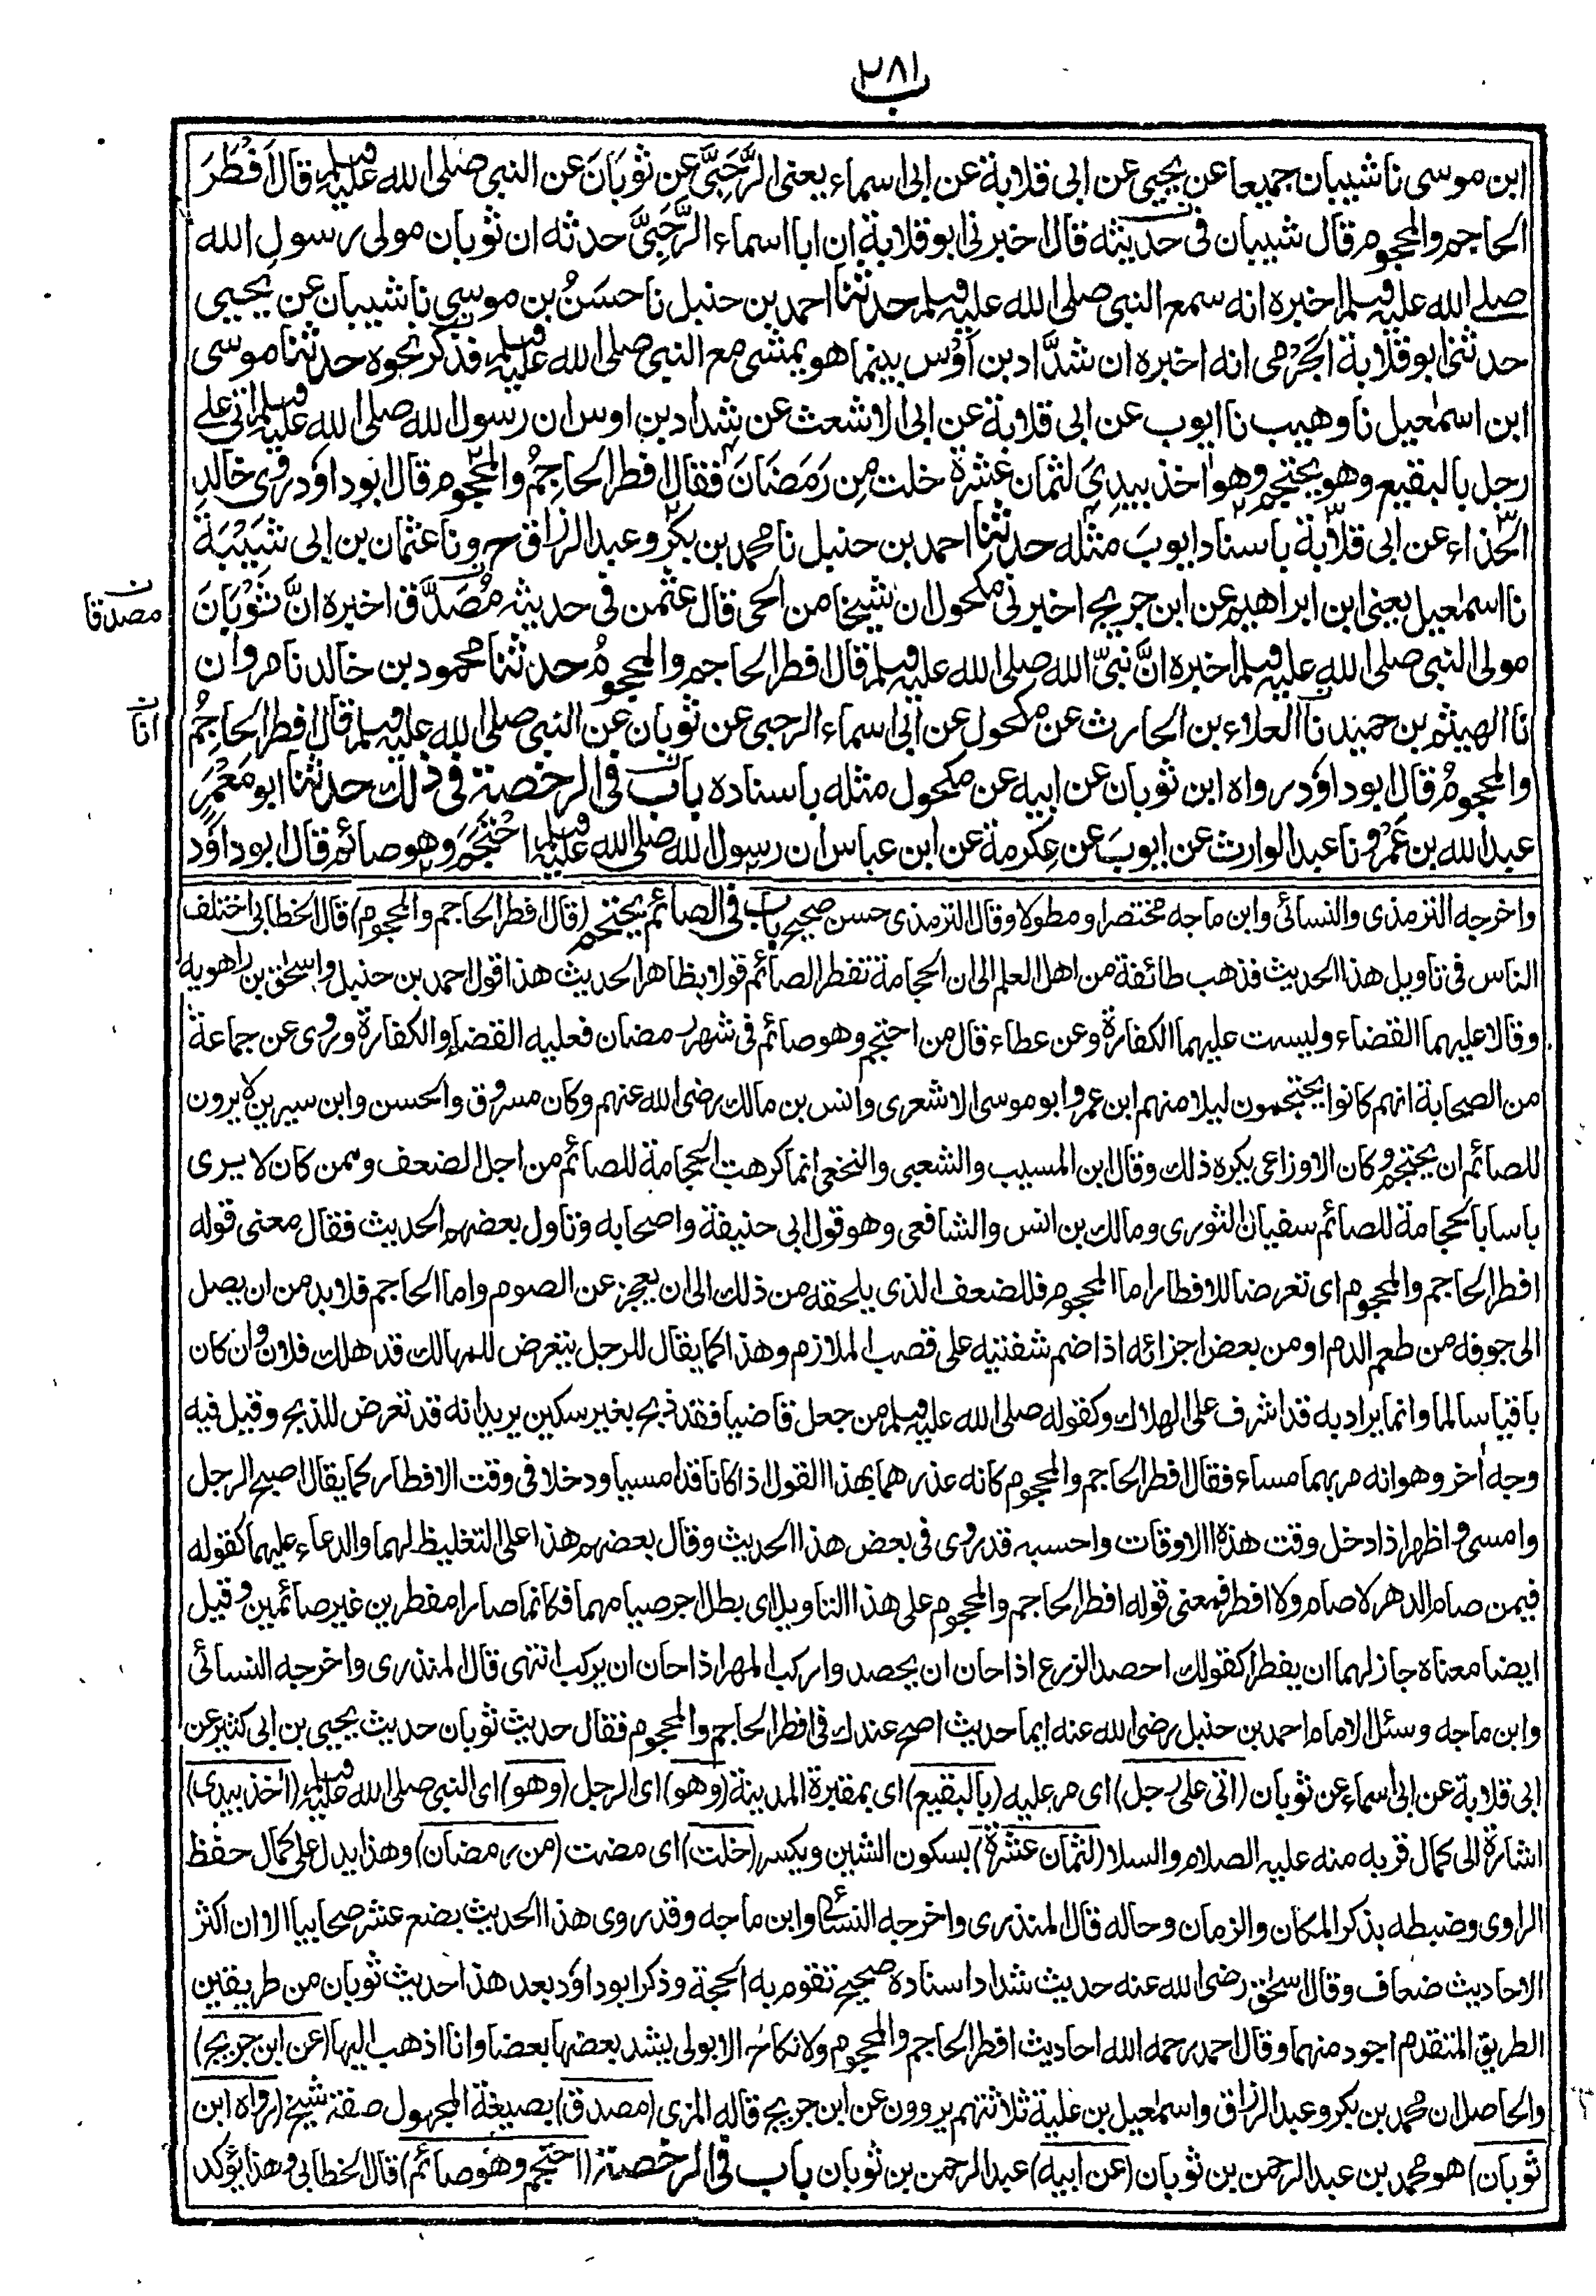 ٢٨١
ب
ابن موسى نا شيبان جميعا عن يحيى عن ابى قلابة عن ابى اسماء يعنى الرَّحَبِىَّ عن ثوبَانَ عن النبى صلى الله عليه وسلم قال اَفْطَرَ
الحاجم والمحجوم قال شيبان فى حديثه قال اخبرنى ابو قلابة ان ابا اسماء الرَّحَبِىَّ حدثه ان ثوبان مولى رسول الله
صلى الله عليه وسلم اخبره انه سمع النبى صلى الله عليه وسلم حدثنا احمد بن حنبل نا حسَنُ بن موسى نا شيبان عن يحيى
حدثنى ابو قلابة الجَرْمى انه اخبره ان شدَّاد بن اَوْس بينما هو يمشى مع النبى صلى الله عليه وسلم فذكر نحوه حدثنا موسى
ابن اسمٰعيل نا وهيب نا ايوب عن ابى قلابة عن ابى الاشعث عن شداد بن اوس ان رسول الله صلى الله عليه وسلم اتى على
رجل بالبقيع وهو يحتجم وهو اٰخذ بيدِىَ لثمان عشْرةَ خلت مِن رَمَضَانَ فقال افطر الحاجِمُ والمحجوم قال ابو داؤد وروى خالد
الحَذّاء عن ابى قلابة باسناد ايوبَ مثله حدثنا احمد بن حنبل نا محمد بن بكر وعبد الرزاق ح ونا عثمان بن ابى شَيْبَةَ
نا اسمٰعيل يعنى ابن ابراهيم عن ابن جريج اخبرنى مكحول ان شيخا من الحى قال عثمٰن فى حديثه مُصَدَّق اخبره انَّ ثَوْبَانَ
مصدقا
مولى النبى صلى الله عليه وسلم اخبره انَّ نبىّ الله صلى الله عليه وسلم قال افطر الحاجم والمحجومُ حدثنا محمود بن خالد نا مروان
نا الهيثم بن حميد نا العلاء بن الحارث عن مكحول عن ابى اسماء الرحبى عن ثوبان عن النبى صلى الله عليه وسلم قال افطر الحاجِمُ
انا
والمحجومُ قال ابو داؤد رواه ابن ثوبان عن ابيه عن مكحول مثله باسناده باب فى الرخصة فى ذلك حدثنا ابو مَعْمَرٍ
عبد الله بن عَمْرٍو نا عبد الوارث عن ايوبَ عن عِكرمة عن ابن عباس ان رسول الله صلى الله عليه وسلم احْتَجَمَ وهو صائم قال ابو داؤد
واخرجه الترمذى والنسائى وابن ماجه مختصرا ومطولا وقال الترمذى حسن صحيح باب فى الصائم يحتجم (قال افطر الحاجم والمحجوم) قال الخطابى اختلف
الناس فى تاويل هذا الحديث فذهب طائفة من اهل العلم الى ان الحجامة تفطر الصائم قولا بظاهر الحديث هذا قول احمد بن حنبل واسحٰق بن راهويه
وقالا عليهما القضاء وليست عليهما الكفارة وعن عطاء قال من احتجم وهو صائم فى شهر رمضان فعليه القضاء والكفارة وروى عن جماعة
من الصحابة انهم كانوا يحتجمون ليلا منهم ابن عمر وابو موسى الاشعرى وانس بن مالك رضى الله عنهم وكان مسروق والحسن وابن سيرين لا يرون
للصائم ان يحتجم وكان الاوزاعى يكره ذلك وقال ابن المسيب والشعبى والنخعى انما كرهت الحجامة للصائم من اجل الضعف وممن كان لا يرى
باسا بالحجامة للصائم سفيان الثورى ومالك بن انس والشافعى وهو قول ابى حنيفة واصحابه وتاول بعضهم الحديث فقال معنى قوله
افطر الحاجم والمحجوم اى تعرضا للافطار اما المحجوم فللضعف الذى يلحقه من ذلك الى ان يعجز عن الصوم واما الحاجم فلا بد من ان يصل
الى جوفه من طعم الدم او من بعض اجزائه اذا ضم شفتيه على قصب الملازم وهذا كما يقال للرجل يتعرض للمهالك قد هلك فلان وان كان
باقيا سالما وانما يراد به قد اشرف على الهلاك وكقوله صلى الله عليه وسلم من جعل قاضيا فقد ذبح بغير سكين يريد انه قد تعرض للذبح وقيل فيه
وجه اٰخر وهو انه مر بهما مساء فقال افطر الحاجم والمحجوم كانه عذرهما بهذا القول اذا كانا قد امسيا ودخلا فى وقت الافطار كما يقال اصبح الرجل
وامسى واظهر اذا دخل وقت هذه الاوقات واحسبه قد روى فى بعض هذا الحديث وقال بعضهم هذا على التغليظ لهما والدعاء عليهما كقوله
فيمن صام الدهر لا صام ولا افطر فمعنى قوله افطر الحاجم والمحجوم على هذا التاويل اى بطل اجر صيامهما فكانما صارا مفطرين غير صائمين وقيل
ايضا معناه جاز لهما ان يفطرا كقولك احصد الزرع اذا حان ان يحصد واركب المهر اذا حان ان يركب انتهى قال المنذرى واخرجه النسائى
وابن ماجه وسئل الامام احمد بن حنبل رضى الله عنه ايما حديث اصح عندك فى افطر الحاجم والمحجوم فقال حديث ثوبان حديث يحيى بن ابى كثير عن
ابى قلابة عن ابى اسماء عن ثوبان (اتى على رجل) اى مر عليه (بالبقيع) اى بمقبرة المدينة (وهو) اى الرجل (وهو) اى النبى صلى الله عليه وسلم (اٰخذ بيدى)
اشارة الى كمال قربه منه عليه الصلاة والسلا (لثمان عشرة) بسكون الشين ويكسر (خلت) اى مضت (من رمضان) وهذا يدل على كمال حفظ
الراوى وضبطه بذكر المكان والزمان وحاله قال المنذرى واخرجه النسائى وابن ماجه وقد روى هذا الحديث بضع عشر صحابيا الا ان اكثر
الاحاديث ضعاف وقال اسحٰق رضى الله عنه حديث شداد اسناده صحيح تقوم به الحجة وذكر ابو داؤد بعد هذا حديث ثوبان من طريقين
الطريق المتقدم اجود منهما وقال احمد رحمه الله احاديث افطر الحاجم والمحجوم ولا نكاح الا بولى يشد بعضها بعضا وانا اذهب اليها (عن ابن جريج)
والحاصل ان محمد بن بكر وعبد الرزاق واسمٰعيل بن علية ثلاثتهم يروون عن ابن جريج قاله المزى (مصدق) بصيغة المجهول صفة شيخ (رواه ابن
ثوبان) هو محمد بن عبد الرحمن بن ثوبان (عن ابيه) عبد الرحمن بن ثوبان باب فى الرخصة (احتجم وهو صائم) قال الخطابى وهذا يؤكد